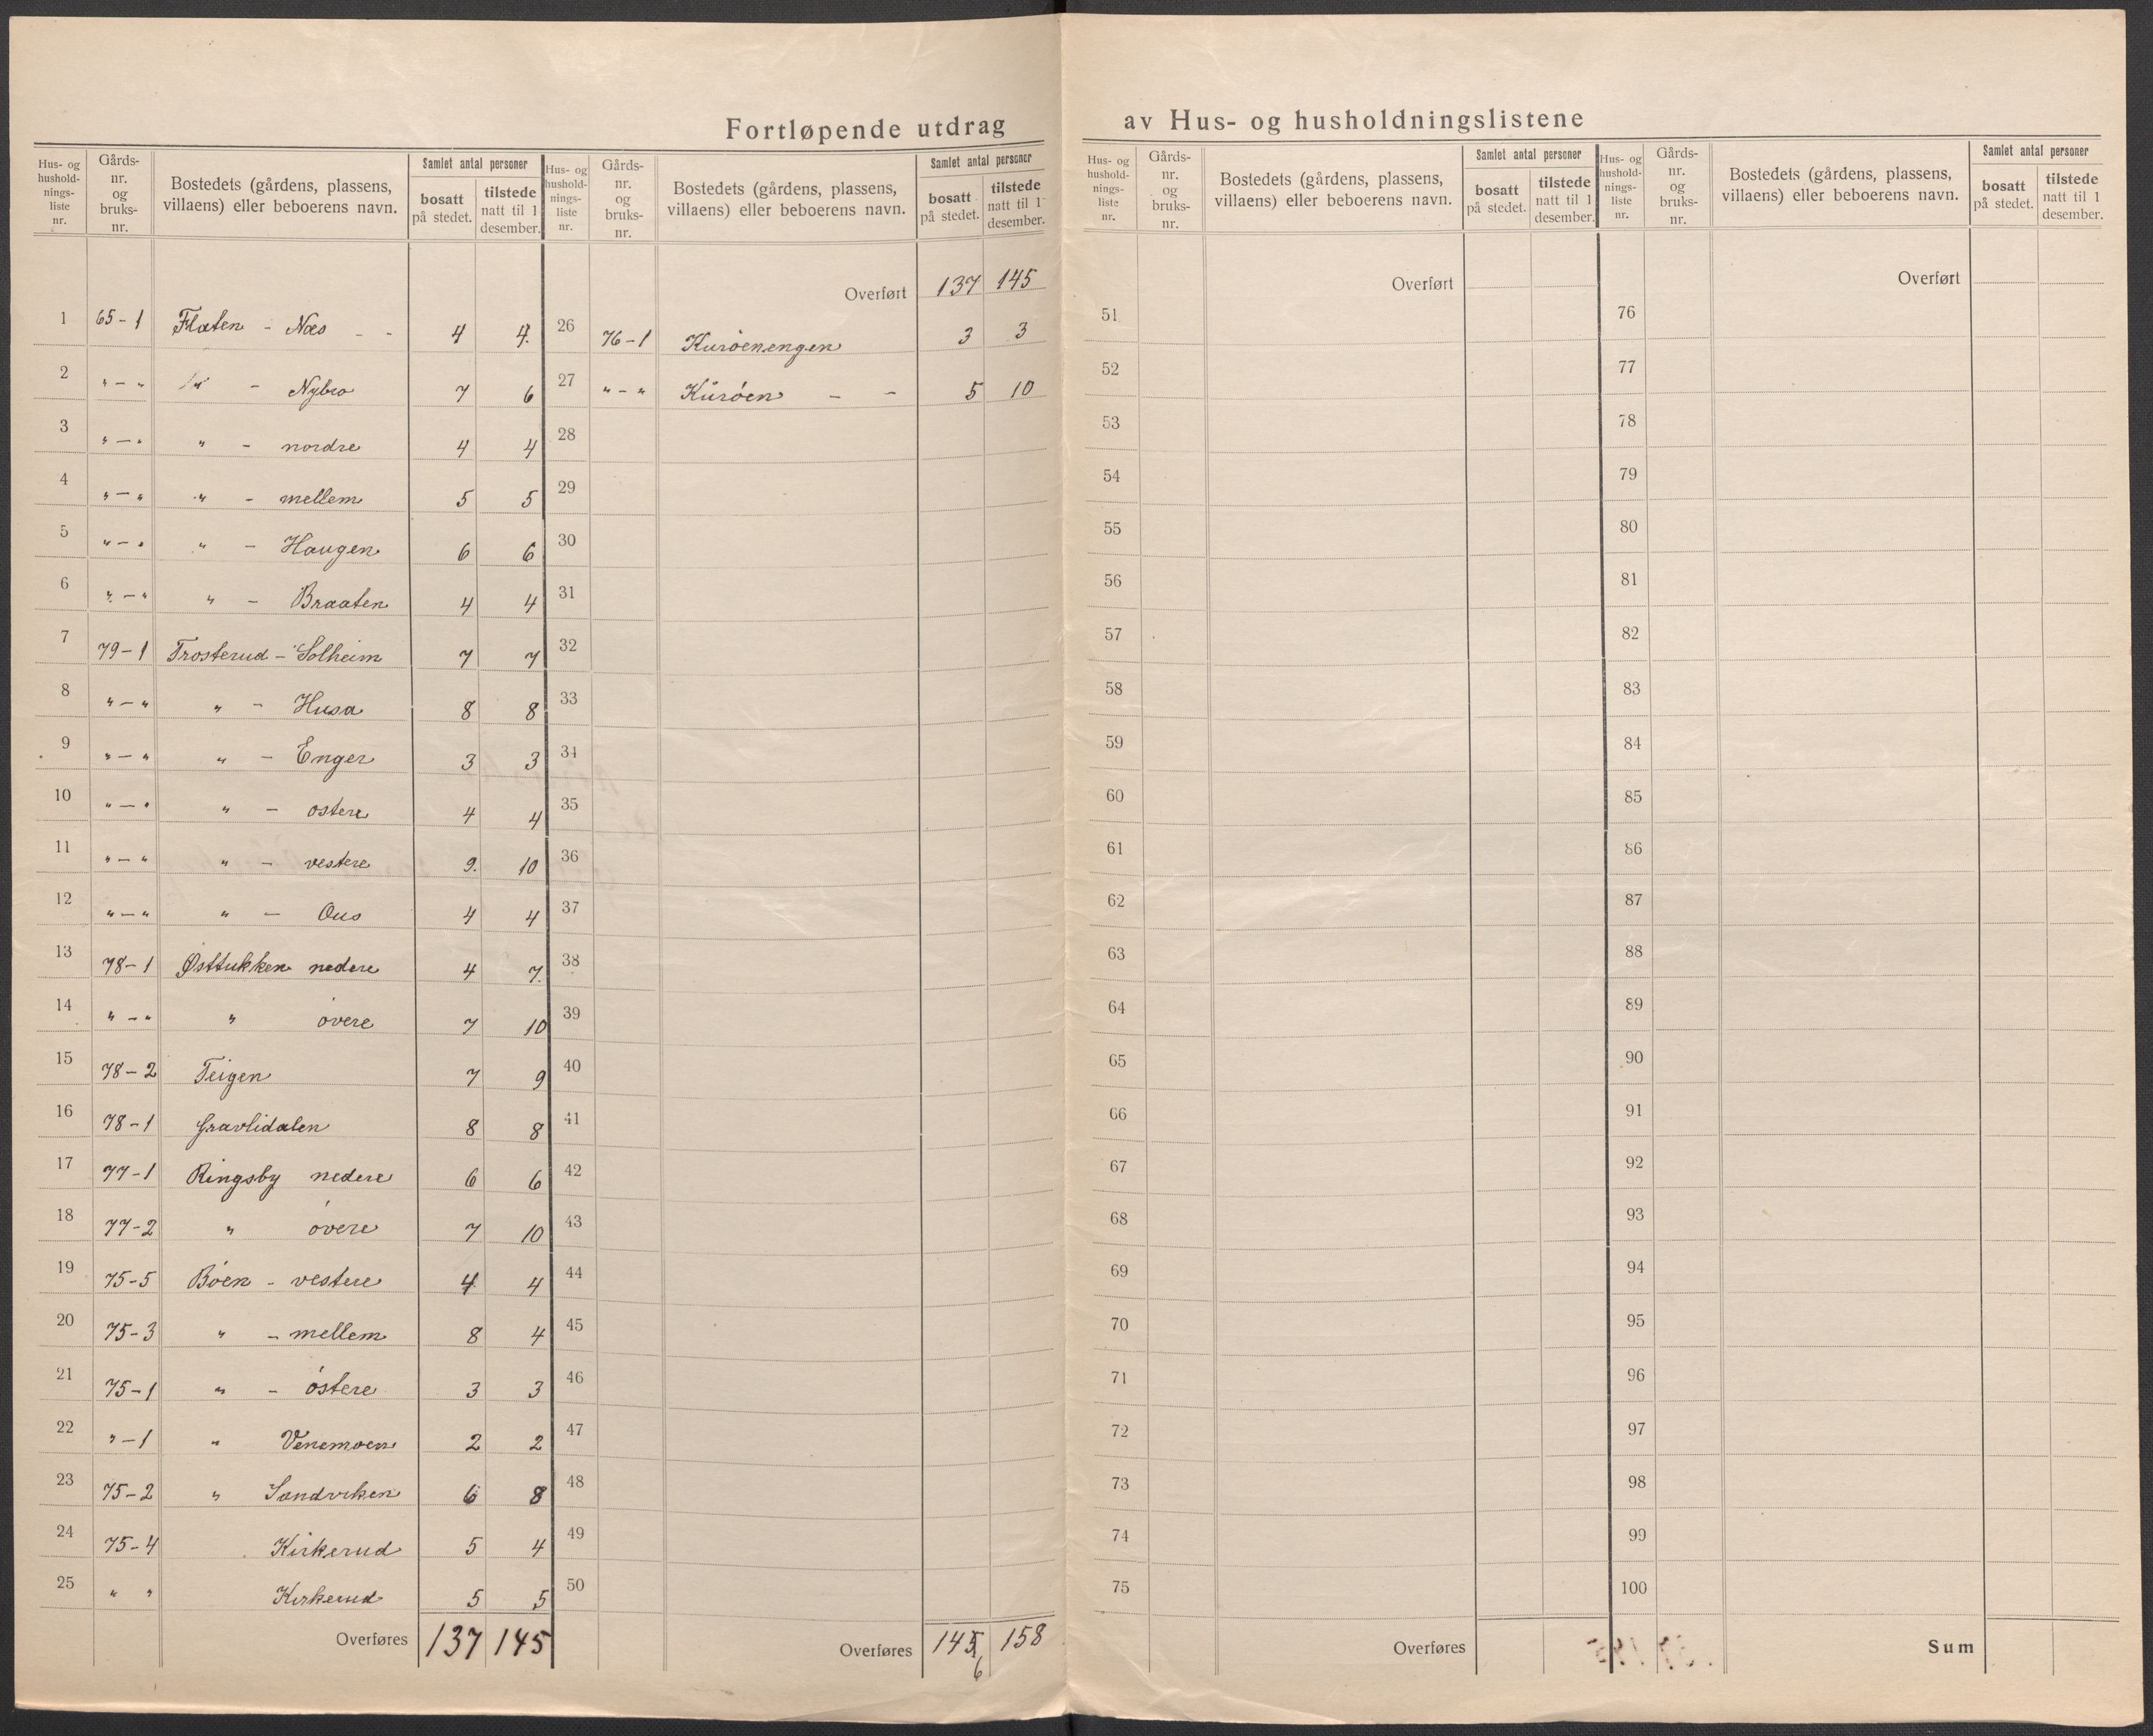 Fortløpende utdrag av Hus- og husholdningslistene
Hus- og hushold-nings-liste nr. Gårds-nr. og bruks-nr. Bostedets (gårdens, plassens, villaens) eller beboerens navn. Samlet antal personer bosatt på stedet. tilstede natt til 1 desember.
1 65-1 Flaten - Næs - - 4 4.
2 " - " " - Nybro 7 6
3 " - " " - nordre 4 4
4 " - " " - mellem 5 5
5 " - " " - Haugen 6 6
6 " - " " - Braaten 4 4
7 79-1 Trosterud - Solheim 7 7
8 " - " " - Husa 8 8
9 " - " " - Enger 3 3
10 " - " " - østere 4 4
11 " - " " - vestere 9. 10
12 " - " " - Ous 4 4
13 78-1 Østtukken nedere 4 7.
14 " - " " øvere 7 10
15 78-2 Teigen 7 9
16 78-1 Gravlidalen 8 8
17 77-1 Ringsby nedere 6 6
18 77-2 " øvere 7 10
19 75-5 Bøen - vestere 4 4
20 75-3 " - mellem 8 4
21 75-1 " - østere 3 3
22 " -1 " Venemoen 2 2
23 75-2 " Sandviken 6 8
24 75-4 Kirkerud 5 4
25 " " Kirkerud 5 5
Overføres 137 145
Hus- og hushold-nings-liste nr. Gårds-nr. og bruks-nr. Bostedets (gårdens, plassens, villaens) eller beboerens navn. Samlet antal personer bosatt på stedet. tilstede natt til 1 desember.
Overført 137 145
26 76-1 Kurøenengen 3 3
27 " - " Kurøen - - 5 10
28
29
30
31
32
33
34
35
36
37
38
39
40
41
42
43
44
45
46
47
48
49
50
Overføres 145 158
6
Hus- og hushold-nings-liste nr. Gårds-nr. og bruks-nr. Bostedets (gårdens, plassens, villaens) eller beboerens navn. Samlet antal personer bosatt på stedet. tilstede natt til 1 desember.
Overført
51
52
53
54
55
56
57
58
59
60
61
62
63
64
65
66
67
68
69
70
71
72
73
74
75
Overføres
Hus- og hushold-nings-liste nr. Gårds-nr. og bruks-nr. Bostedets (gårdens, plassens, villaens) eller beboerens navn. Samlet antal personer bosatt på stedet. tilstede natt til 1 desember.
Overført
76
77
78
79
80
81
82
83
84
85
86
87
88
89
90
91
92
93
94
95
96
97
98
99
100
Sum